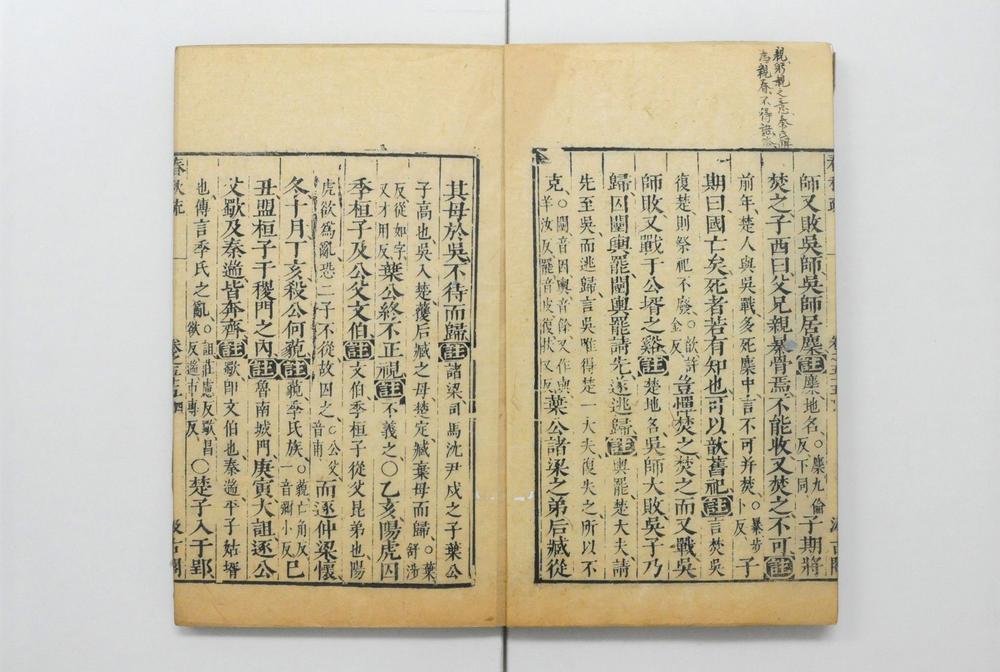 親躬親之意
爲親春不得
春秋疏
師又敗吳師吳師居麇註麇地名。麇九倫反下同子期將
焚之子西曰父兄親暴骨焉不能收又焚之不可註
前年楚人與吳戰多死麇中言不可并焚。暴步卜反子
期曰國亡矣死者若有知也可以歆舊祀註言焚吳
復楚則祭祀不廢。歆許金反豈憚焚之焚之而又戰吳
師敗又戰于公壻之谿註楚地名吳師大敗吳子乃
歸囚闉輿罷闉輿罷請先遂逃歸註輿罷楚大夫請
先至吳而逃歸言吳唯得楚一大夫復失之所以不
克。闉音因輿音餘又作與羊汝反罷音皮復扶又反葉公諸梁之弟后臧從
其母於吳不待而歸註諸梁司馬沈尹戌之子葉公
子高也吳入楚獲后臧之母楚定臧棄母而歸。葉舒涉
反從如字又才用反葉公終不正視註不義之〇乙亥陽虎囚
季桓子及公父文伯註文伯季桓子從父昆弟也陽
虎欲爲亂恐二子不從故囚之。公父音甫而逐仲梁懷
冬十月丁亥殺公何藐註藐季氏族。藐亡角反一音彌小反己
丑盟桓子于稷門之內註魯南城門庚寅大詛逐公
父歜及秦遄皆奔齊註歜即文伯也秦遄平子姑壻
也傳言季氏之亂。詛莊慮反歜昌欲反遄市專反〇楚子入于郢
春秋疏
汲古閣